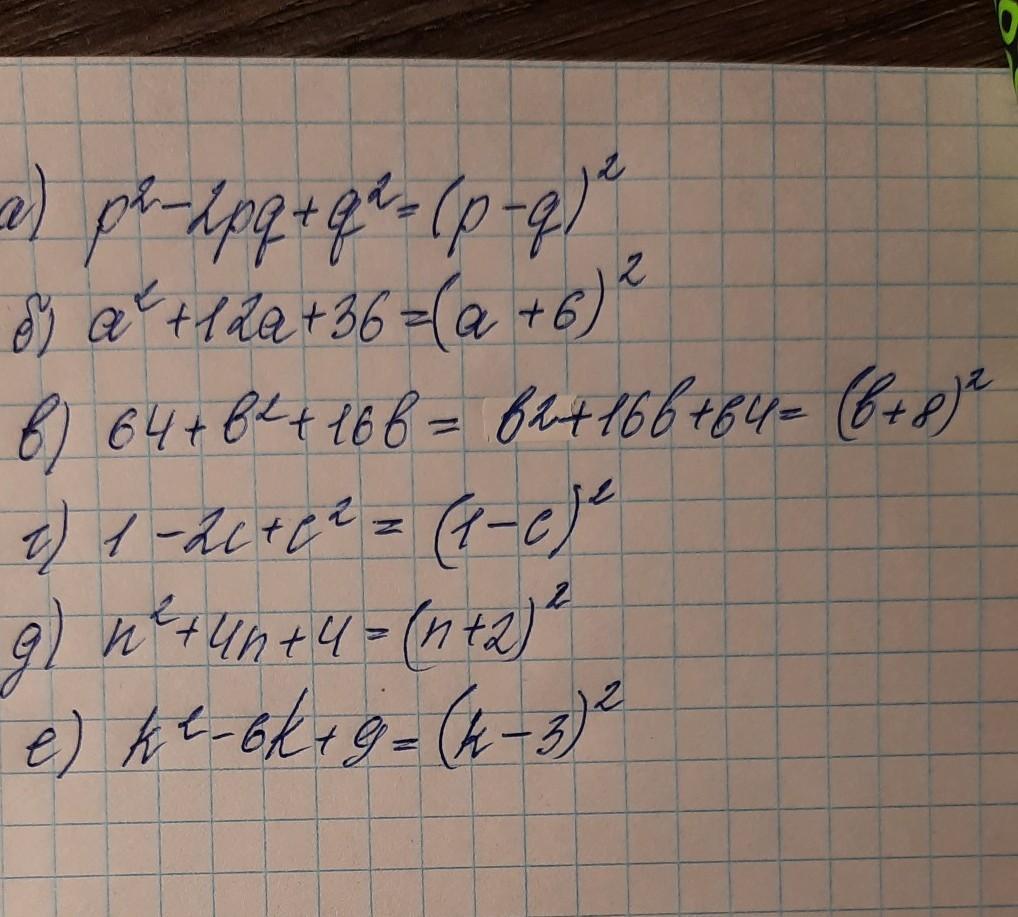 а) p²-2pq+q²=(p-q)²
б) a²+12a+36=(a+6)²
в) 64+b²+16b= b2+16b+64=(b+8)²
г) 1-2c+c²=(1-c)²
д) n²+4n+4=(n+2)²
е) k²-6k+9=(k-3)²